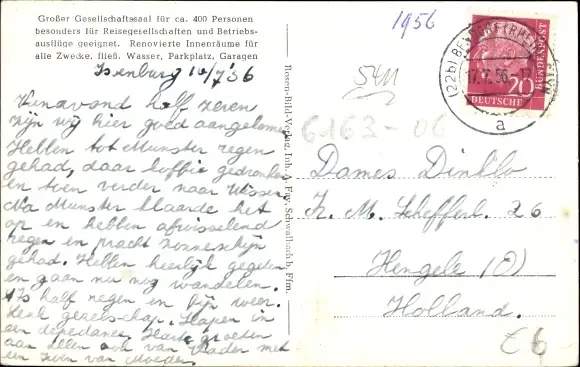 Großer Gesellschaftssaal für ca. 400 Personen
besonders für Reisegesellschaften und Betriebs-
ausflüge geeignet. Renovierte Innenräume für
alle Zwecke. fließ. Wasser, Parkplatz, Garagen
Isenburg 16/7'56
Vanavond half zeven
zijn wij hier goed aangekomen
Hebben tot Munster regen
gehad, daar koffie gedronken
en toen verder naar Wissen
Na Munster klaarde het
op en hebben afwisselend
regen en pracht zonneschijn
gehad. Hebben heerlijk gegeten
en gaan nu nog wandelen.
't Is half negen en fijn weer.
gezelschap. Slapen in
een depedance. Hart. groeten
aan allen ook van Vader met
een zoen van Moeder
Rosen-Bild-Verlag, Inh. A. Fay, Schwalbach b. Ffm.
1956
5411
6163-06
(22b) BENDORF (RHEIN)
17.7.56
a
20
DEUTSCHE
BUNDESPOST
Dames Dinklo
K. M. Scheffer. 26
Hengelo (O)
Holland.
£6